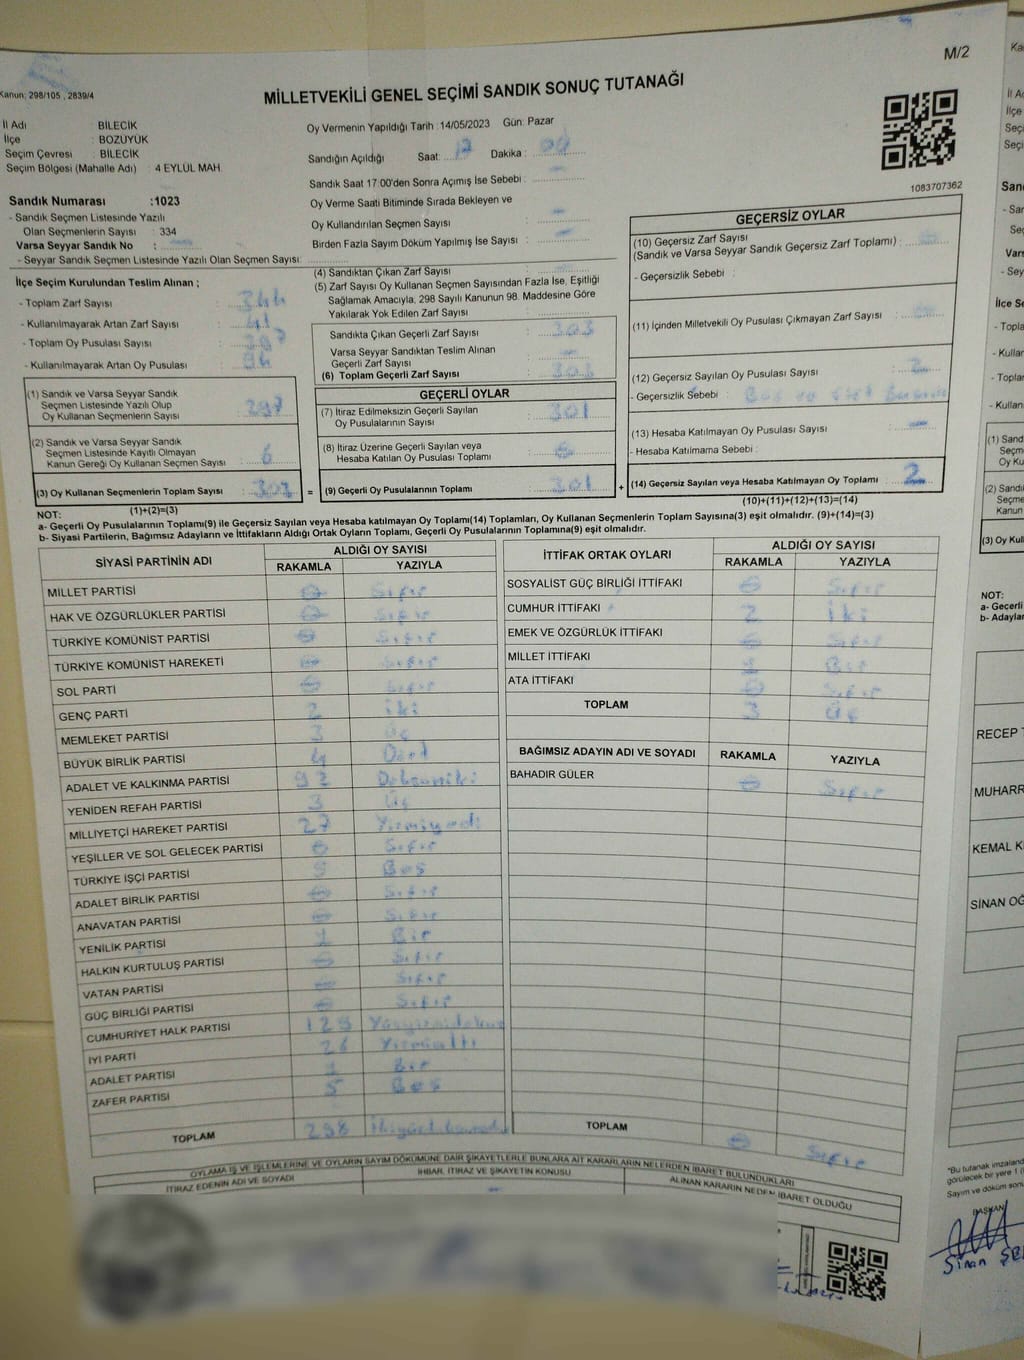 M/2
Kanun: 298/105 , 2839/4
MİLLETVEKİLİ GENEL SEÇİMİ SANDIK SONUÇ TUTANAĞI
İl Adı : BİLECİK
İlçe : BOZÜYÜK
Seçim Çevresi : BİLECİK
Seçim Bölgesi (Mahalle Adı) : 4 EYLÜL MAH
Oy Vermenin Yapıldığı Tarih :14/05/2023 Gün: Pazar
Sandığın Açıldığı Saat: Dakika :
Sandık Saat 17:00'den Sonra Açımış İse Sebebi :
Oy Verme Saati Bitiminde Sırada Bekleyen ve
Oy Kullandırılan Seçmen Sayısı :
Birden Fazla Sayım Döküm Yapılmış İse Sayısı :
1083707362
Sandık Numarası :1023
- Sandık Seçmen Listesinde Yazılı
Olan Seçmenlerin Sayısı : 334
Varsa Seyyar Sandık No :
- Seyyar Sandık Seçmen Listesinde Yazılı Olan Seçmen Sayısı:
İlçe Seçim Kurulundan Teslim Alınan ;
- Toplam Zarf Sayısı : 344
- Kullanılmayarak Artan Zarf Sayısı : 41
- Toplam Oy Pusulası Sayısı :
- Kullanılmayarak Artan Oy Pusulası : 94
(1) Sandık ve Varsa Seyyar Sandık
Seçmen Listesinde Yazılı Olup
Oy Kullanan Seçmenlerin Sayısı : 297
(2) Sandık ve Varsa Seyyar Sandık
Seçmen Listesinde Kayıtlı Olmayan
Kanun Gereği Oy Kullanan Seçmen Sayısı : 6
(3) Oy Kullanan Seçmenlerin Toplam Sayısı : 303
(1)+(2)=(3)
(4) Sandıktan Çıkan Zarf Sayısı :
(5) Zarf Sayısı Oy Kullanan Seçmen Sayısından Fazla İse, Eşitliği
Sağlamak Amacıyla, 298 Sayılı Kanunun 98. Maddesine Göre
Yakılarak Yok Edilen Zarf Sayısı :
Sandıkta Çıkan Geçerli Zarf Sayısı : 303
Varsa Seyyar Sandıktan Teslim Alınan
Geçerli Zarf Sayısı :
(6) Toplam Geçerli Zarf Sayısı : 303
GEÇERLİ OYLAR
(7) İtiraz Edilmeksizin Geçerli Sayılan
Oy Pusulalarının Sayısı : 301
(8) İtiraz Üzerine Geçerli Sayılan veya
Hesaba Katılan Oy Pusulası Toplamı :
= (9) Geçerli Oy Pusulalarının Toplamı : 301 +
GEÇERSİZ OYLAR
(10) Geçersiz Zarf Sayısı
(Sandık ve Varsa Seyyar Sandık Geçersiz Zarf Toplamı) :
- Geçersizlik Sebebi :
(11) İçinden Milletvekili Oy Pusulası Çıkmayan Zarf Sayısı :
(12) Geçersiz Sayılan Oy Pusulası Sayısı : 2
- Geçersizlik Sebebi :
(13) Hesaba Katılmayan Oy Pusulası Sayısı :
- Hesaba Katılmama Sebebi :
(14) Geçersiz Sayılan veya Hesaba Katılmayan Oy Toplamı : 2
(10)+(11)+(12)+(13)=(14)
NOT:
a- Geçerli Oy Pusulalarının Toplamı(9) ile Geçersiz Sayılan veya Hesaba katılmayan Oy Toplamı(14) Toplamları, Oy Kullanan Seçmenlerin Toplam Sayısına(3) eşit olmalıdır. (9)+(14)=(3)
b- Siyasi Partilerin, Bağımsız Adayların ve İttifakların Aldığı Oyların Toplamı, Geçerli Oy Pusulalarının Toplamına(9) eşit olmalıdır.
SİYASİ PARTİNİN ADI ALDIĞI OY SAYISI
RAKAMLA YAZIYLA
MİLLET PARTİSİ Sıfır
HAK VE ÖZGÜRLÜKLER PARTİSİ Sıfır
TÜRKİYE KOMÜNİST PARTİSİ Sıfır
TÜRKİYE KOMÜNİST HAREKETİ Sıfır
SOL PARTİ Sıfır
GENÇ PARTİ 2 iki
MEMLEKET PARTİSİ 3 Üç
BÜYÜK BİRLİK PARTİSİ 4 Dört
ADALET VE KALKINMA PARTİSİ 92 Doksaniki
YENİDEN REFAH PARTİSİ 3 Üç
MİLLİYETÇİ HAREKET PARTİSİ 27 Yirmiyedi
YEŞİLLER VE SOL GELECEK PARTİSİ 0 Sıfır
TÜRKİYE İŞÇİ PARTİSİ 5 Beş
ADALET BİRLİK PARTİSİ Sıfır
ANAVATAN PARTİSİ Sıfır
YENİLİK PARTİSİ 1 Bir
HALKIN KURTULUŞ PARTİSİ Sıfır
VATAN PARTİSİ Sıfır
GÜÇ BİRLİĞİ PARTİSİ Sıfır
CUMHURİYET HALK PARTİSİ 129
İYİ PARTİ 26 Yirmialtı
ADALET PARTİSİ 1 Bir
ZAFER PARTİSİ 5 Beş
TOPLAM 298
İTTİFAK ORTAK OYLARI ALDIĞI OY SAYISI
RAKAMLA YAZIYLA
SOSYALİST GÜÇ BİRLİĞİ İTTİFAKI Sıfır
CUMHUR İTTİFAKI 2 iki
EMEK VE ÖZGÜRLÜK İTTİFAKI Sıfır
MİLLET İTTİFAKI 1 Bir
ATA İTTİFAKI Sıfır
TOPLAM 3 Üç
BAĞIMSIZ ADAYIN ADI VE SOYADI RAKAMLA YAZIYLA
BAHADIR GÜLER Sıfır
TOPLAM Sıfır
OYLAMA İŞ VE İŞLEMLERİNE VE OYLARIN SAYIM DÖKÜMÜNE DAİR ŞİKAYETLERLE BUNLARA AİT KARARLARIN NELERDEN İBARET BULUNDUKLARI
İTİRAZ EDENİN ADI VE SOYADI İHBAR, İTİRAZ VE ŞİKAYETİN KONUSU ALINAN KARARIN NEDEN İBARET OLDUĞU
RECEP
MUHARR
KEMAL K
SİNAN OĞ
BAŞKAN
Sinan